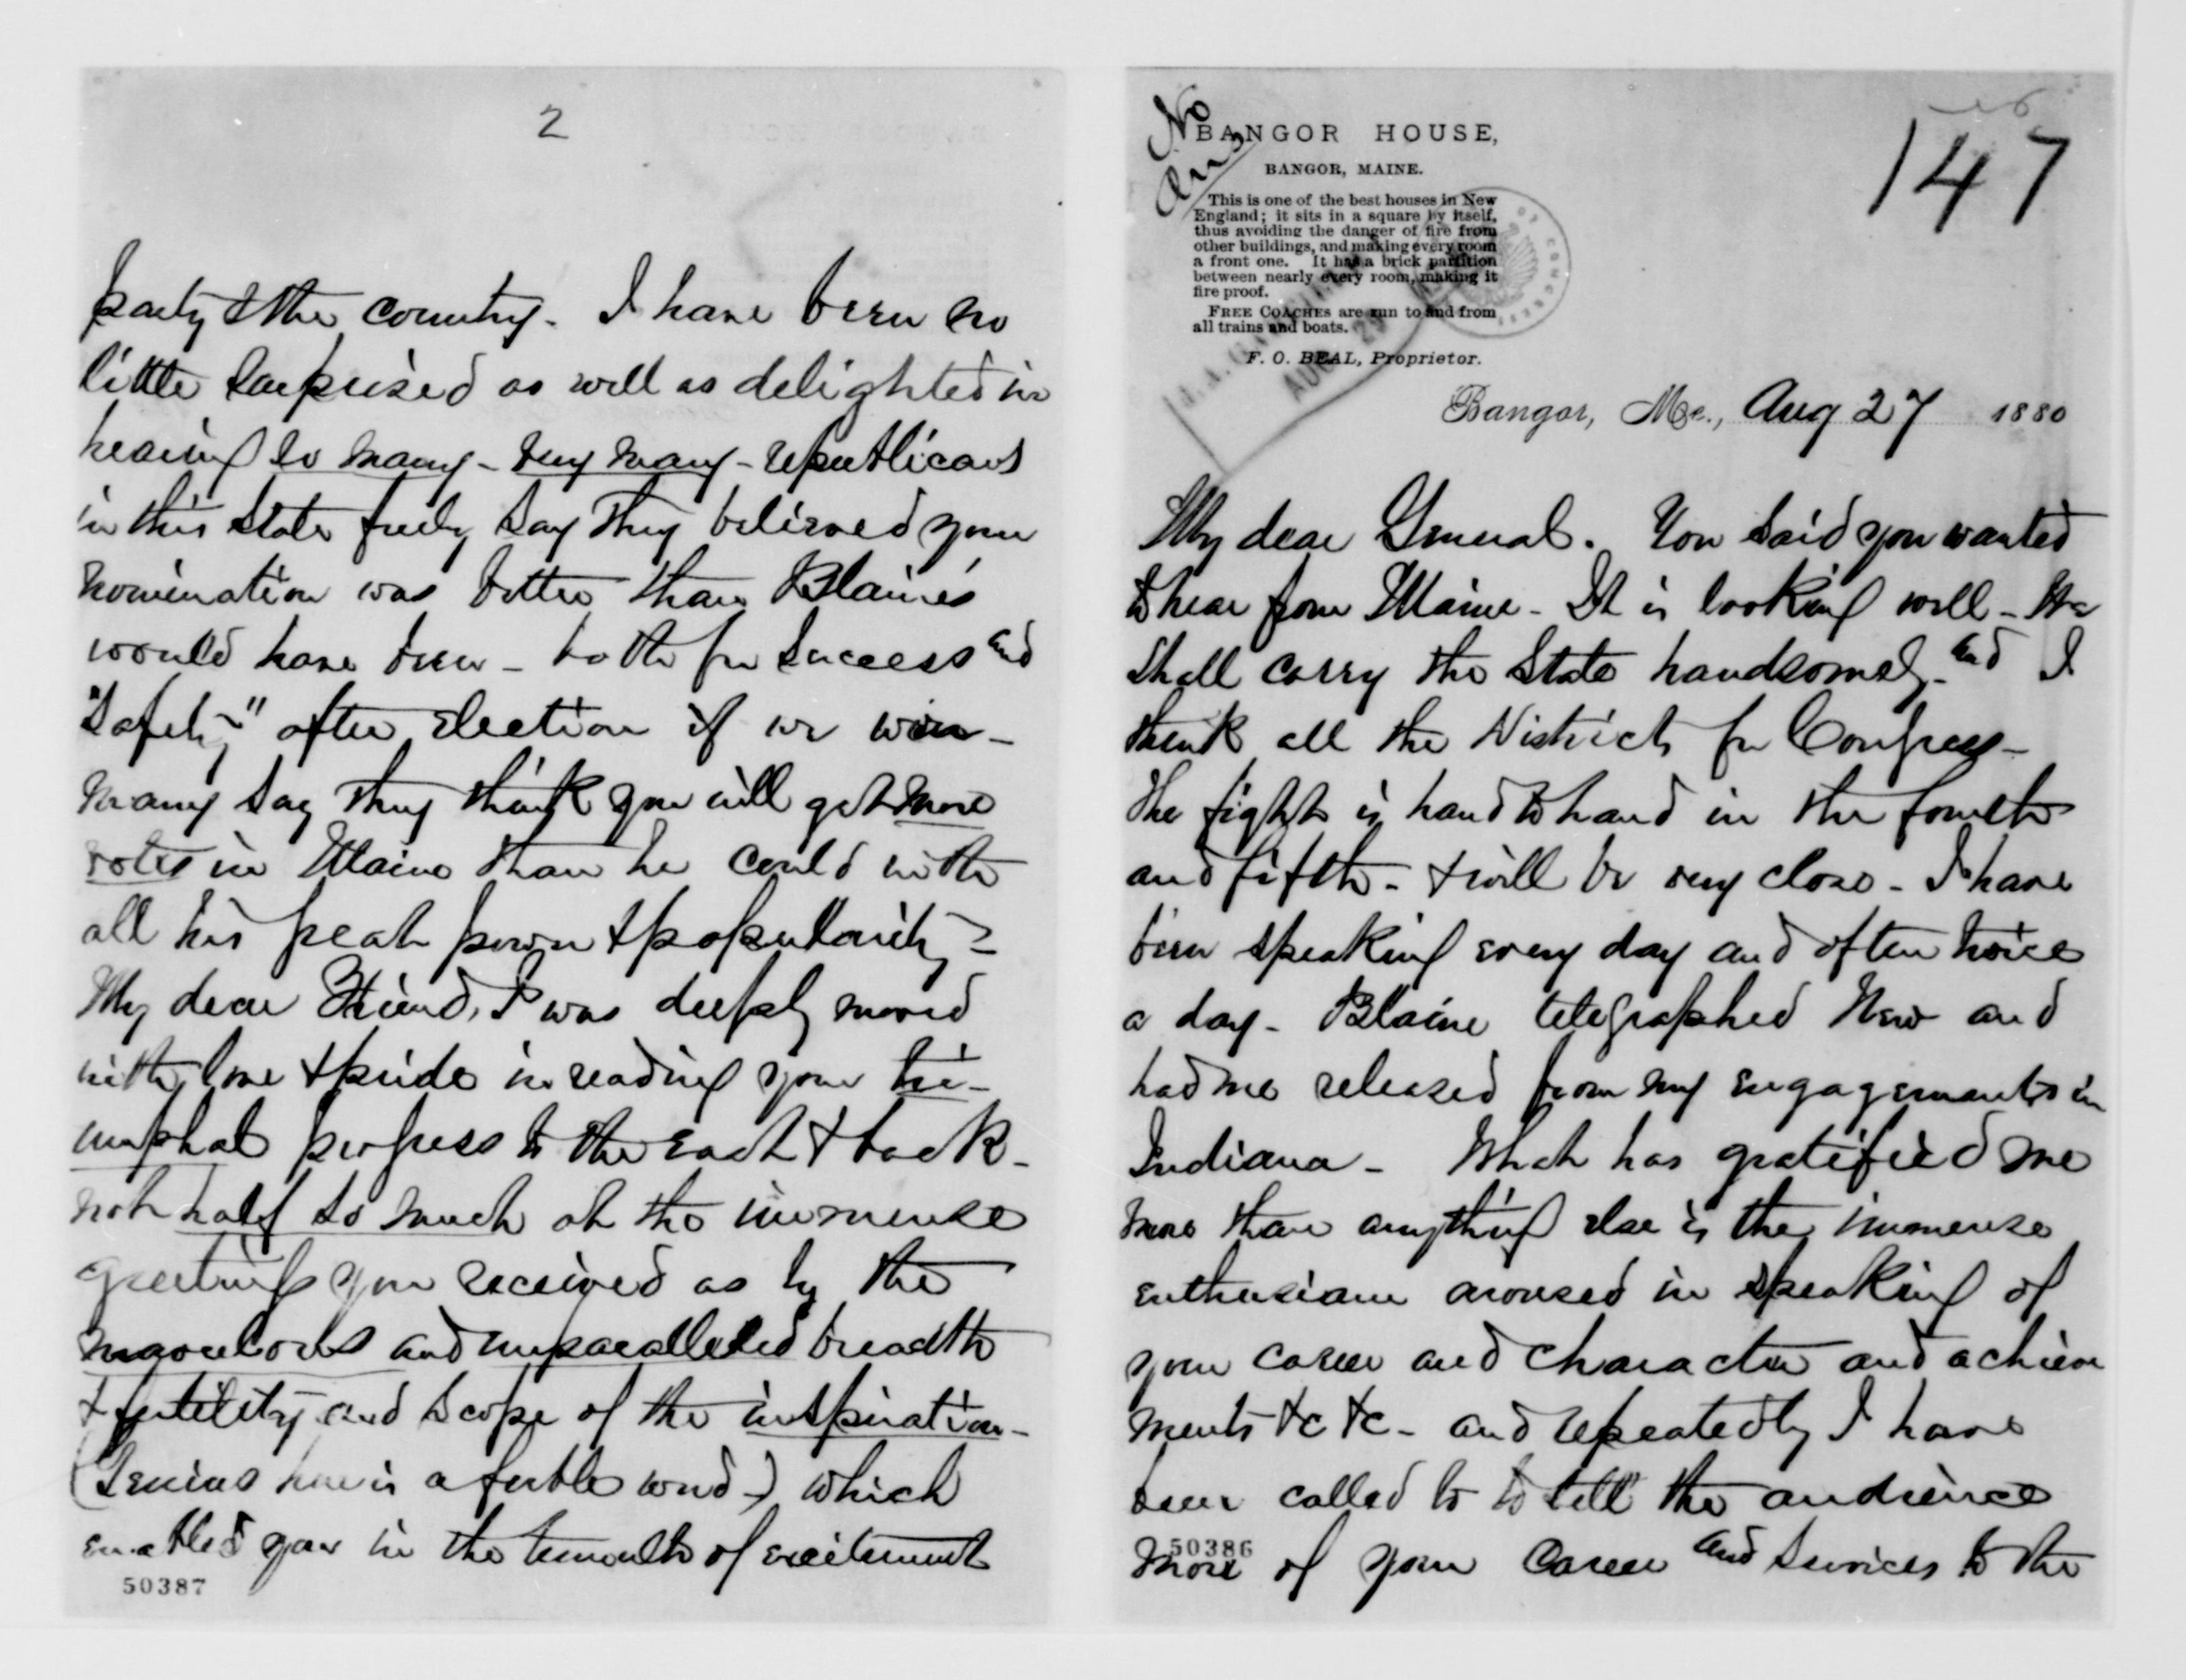 No
Ans
147
BANGOR HOUSE,
BANGOR, MAINE.
This is one of the best houses in New
England; it sits in a square by itself,
thus avoiding the danger of fire from
other buildings, and making every room
a front one. It has a brick partition
between nearly every room, making it
fire proof.
FREE COACHES are run to and from
all trains and boats.
F. O. BEAL, Proprietor.
Bangor, Me., Aug 27 1880
My dear General. You said you wanted
to hear from Maine - It is looking well - We
shall carry the State handsomely - and I
think all the Districts for Congress -
The fight is hand to hand in the fourth
and fifth - & will be very close - I have
been speaking every day and often twice
a day - Blaine telegraphed New and
had me released from my engagements in
Indiana - What has gratified me
more than anything else is the immense
enthusiasm aroused in speaking of
your career and character and achieve
ments &c &c - and repeatedly I have
been called to to "tell" the audience
more of your career and services to the
50386
2
party & the country - I have been no
little surprised as well as delighted in
hearing so many - very many - republicans
in this State freely say they believed your
nomination was better than Blaine's
would have been - both for success and
"safety" after election if we win -
many say they think you will get more
votes in Maine than he could with
all his great power & popularity -
My dear Friend, I was deeply moved
with love & pride in reading your tri-
umphal progress to the East & back -
not half so much at the immense
greetings you received as by the
marvelous and unparalleled breadth
& fertility and scope of the inspiration -
(Genius here is a feeble word -) which
enabled you in the tumult of excitement
50387